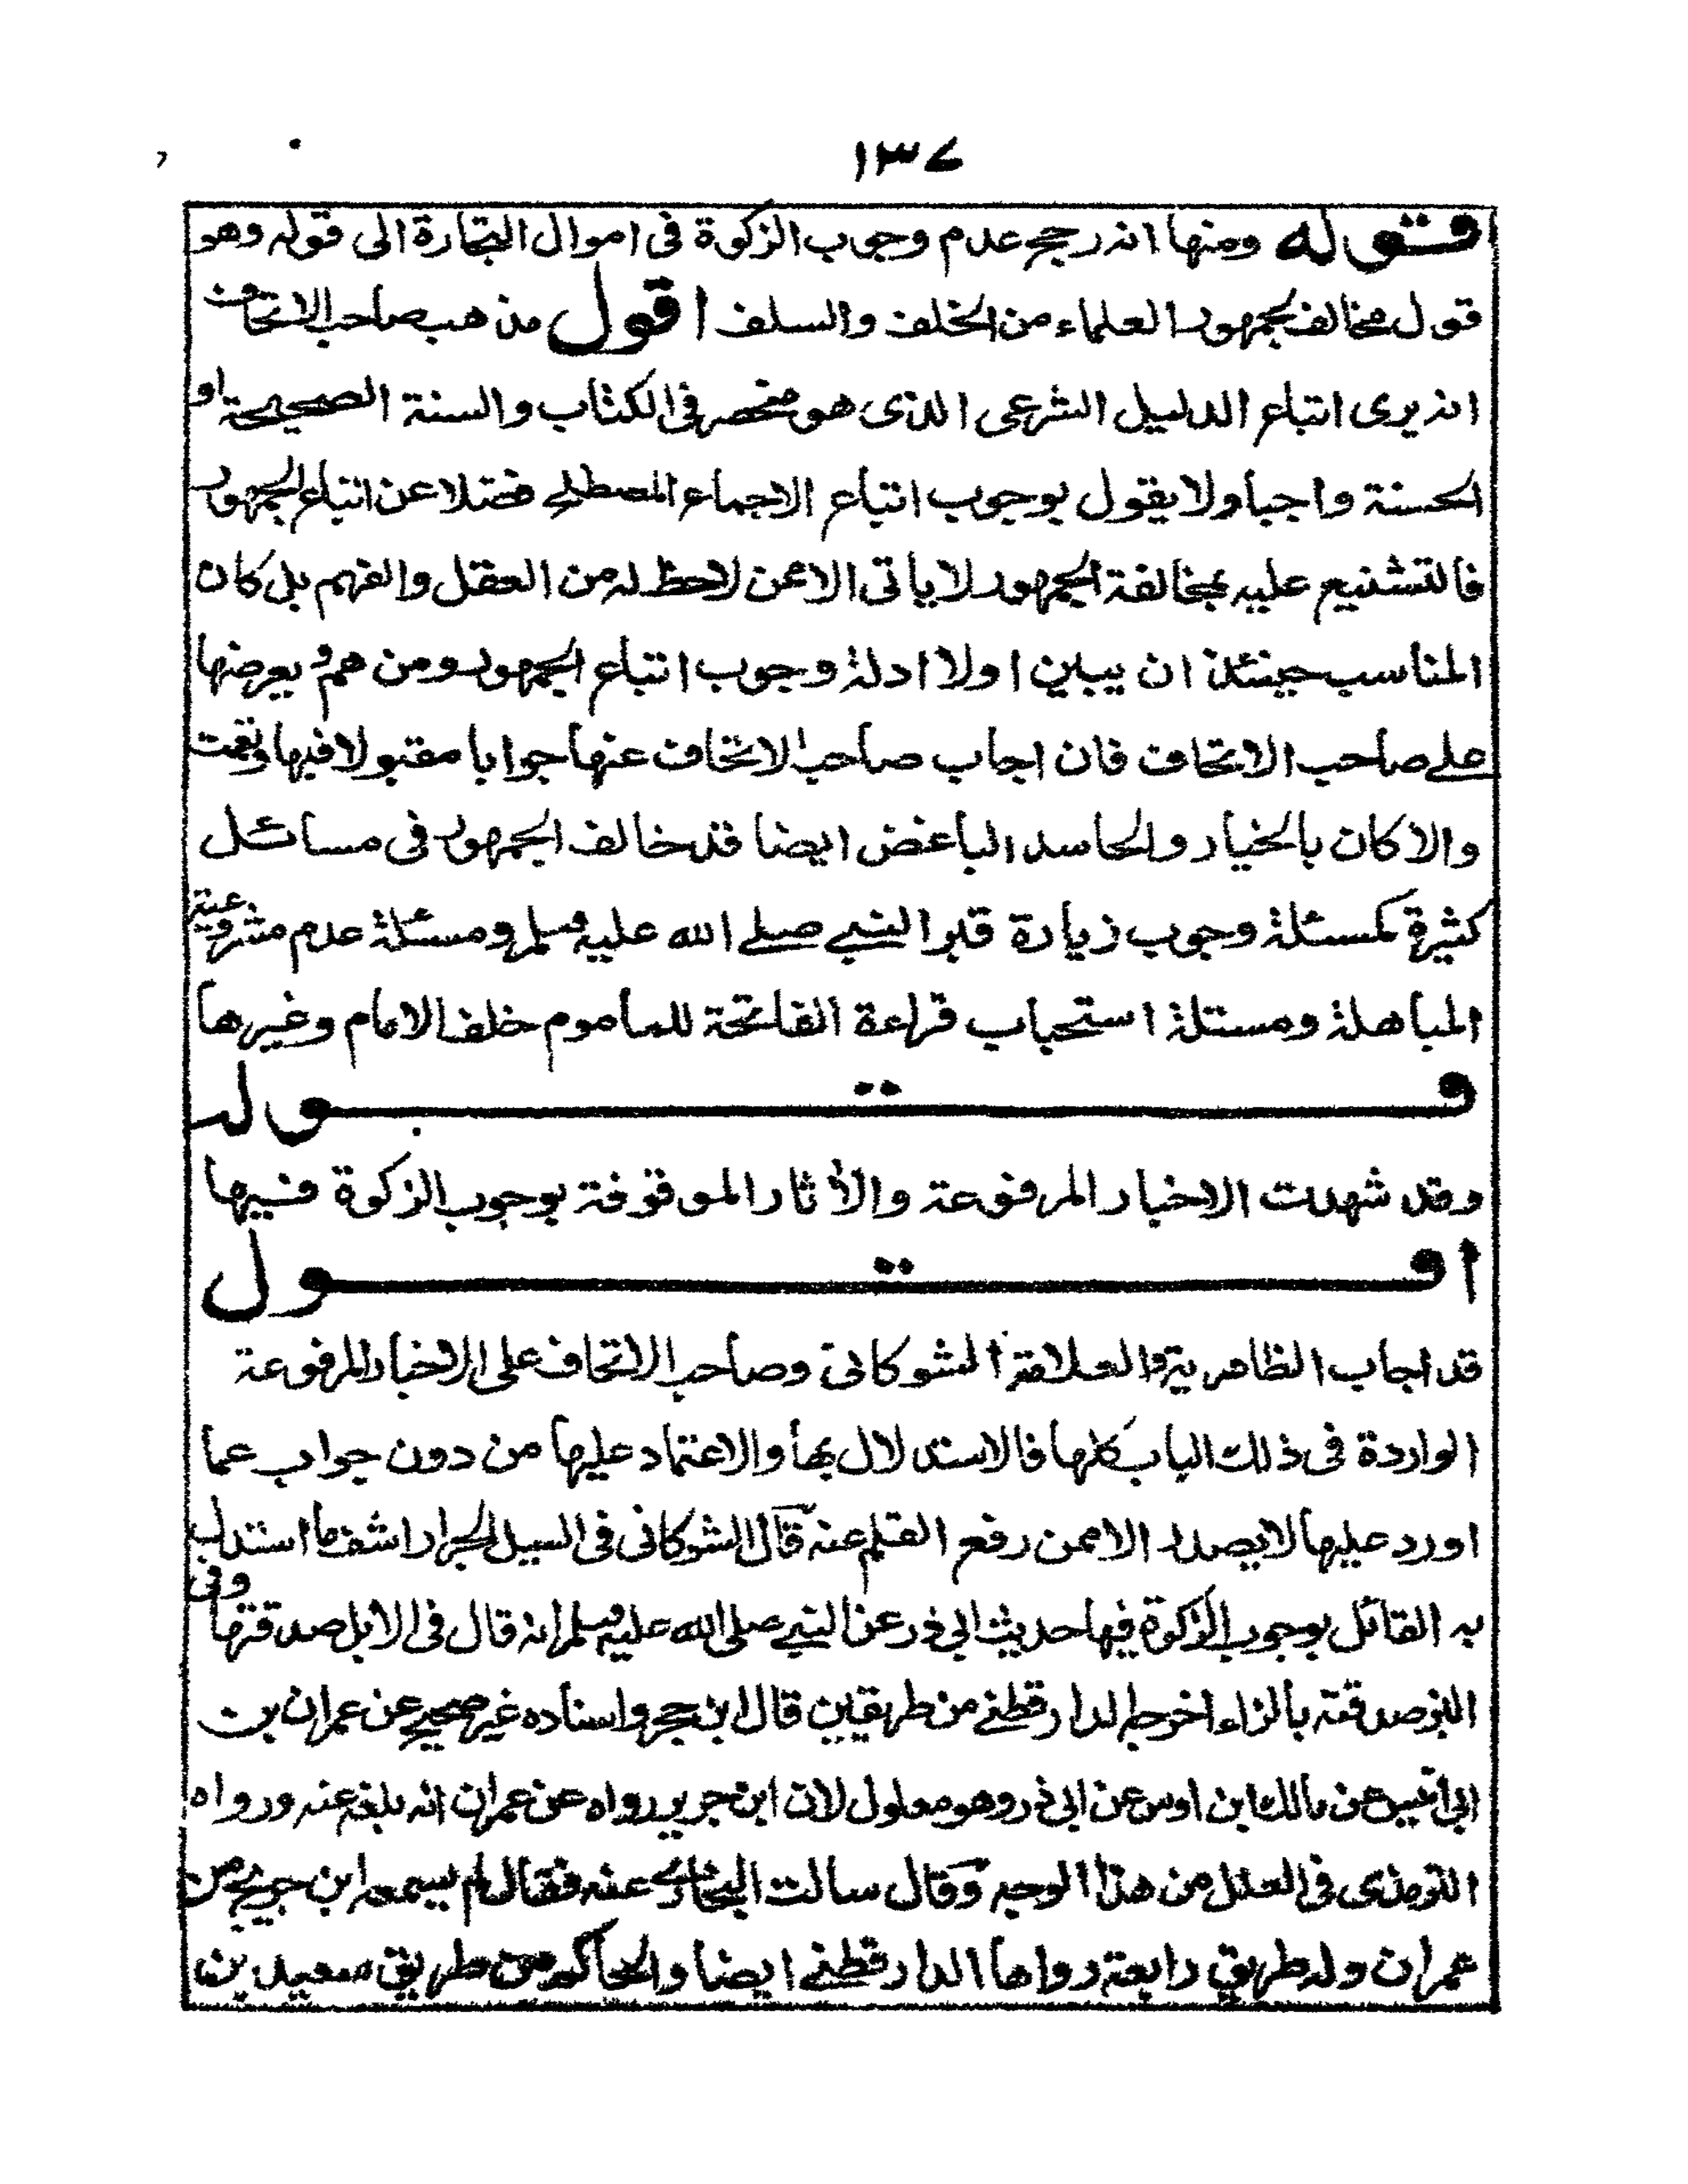 ١٣٧
قوله ومنها انه رجح عدم وجوب الزكوة فى اموال التجارة الى قوله وهو
قول مخالف لجمهور العلماء من الخلف والسلف اقول مذهب صاحب الاتحاف
انه يرى اتباع الدليل الشرعى الذى هو منحصر فى الكتاب والسنة الصحيحة او
الحسنة واجبا ولا يقول بوجوب اتباع الاجماع المصطلح فضلا عن اتباع الجمهور
فالتشنيع عليه بمخالفة الجمهور لا ياتى الا عمن لا حظ له من العقل والفهم بل كان
المناسب حينئذ ان يبين اولا ادلة وجوب اتباع الجمهور ومن هم و يعرضها
على صاحب الاتحاف فان اجاب صاحب الاتحاف عنها جوابا مقبولا فبها ونعمت
والا كان بالخيار والحاسد الباغض ايضا قد خالف الجمهور فى مسائل
كثيرة كمسئلة وجوب زيارة قبر النبي صلے الله عليه وسلم ومسئلة عدم مشروعية
المباهلة ومسئلة استحباب قراءة الفاتحة للماموم خلف الامام وغيرها
قوله
وقد شهدت الاخبار المرفوعة والأثار الموقوفة بوجوب الزكوة فيها
اقول
قد اجاب الظاهرية والعلامة الشوكانى وصاحب الاتحاف على الاخبار المرفوعة
الواردة فى ذلك الباب كلها فالاستدلال بها والاعتماد عليها من دون جواب عما
اورد عليها لا يصدر الا ممن رفع القلم عنه قال الشوكانى فى السيل الجرار اشف ما استدل
به القائل بوجوب الزكوة فيها حديث ابى ذر عن النبي صلى الله عليه وسلم انه قال فى الابل صدقتها وفى
البز صدقته بالزاء اخرجه الدارقطنے من طريقين قال ابن حجر واسناده غير صحيح عن عمران بن
ابى انيس عن مالك ابن اوس عن ابى ذر وهو معلول لان ابن جرير رواه عن عمران انه بلغه عنه ورواه
الترمذى فى العلل من هذا الوجه وقال سالت البخارى عنه فقال لم يسمعه ابن جريج من
عمران وله طريق رابعة رواها الدارقطنے ايضا والحاكم من طريق سعيد بن